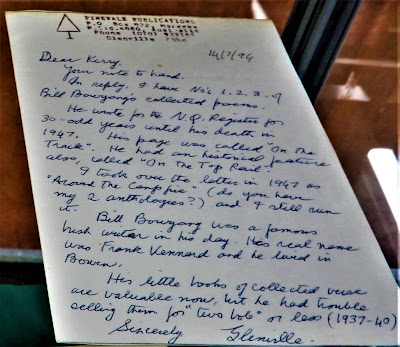 PINEVALE PUBLICATIONS
P.O. Box 872, Mareeba
Phone
Glenville Pike
14/7/94
Dear Kerry,
Your note to hand.
In reply, I have No's 1. 2. 3. of
Bill Bowyang's collected poems.
He wrote for the N.Q. Register for
30-odd years until his death in
1947. His page was called "On The
Track". He had an historical feature
also, called "On The Top Rail."
I took over the letter in 1947 as
"Around The Campfire" (do you have
my 2 anthologies?) and I still run
it.
Bill Bowyang was a famous
bush writer in his day. His real name
was Frank Vennard and he lived in
Bowen.
His little books of collected verse
are valuable now, but he had trouble
selling them for "two bob" or less (1937-40)
Sincerely Glenville.